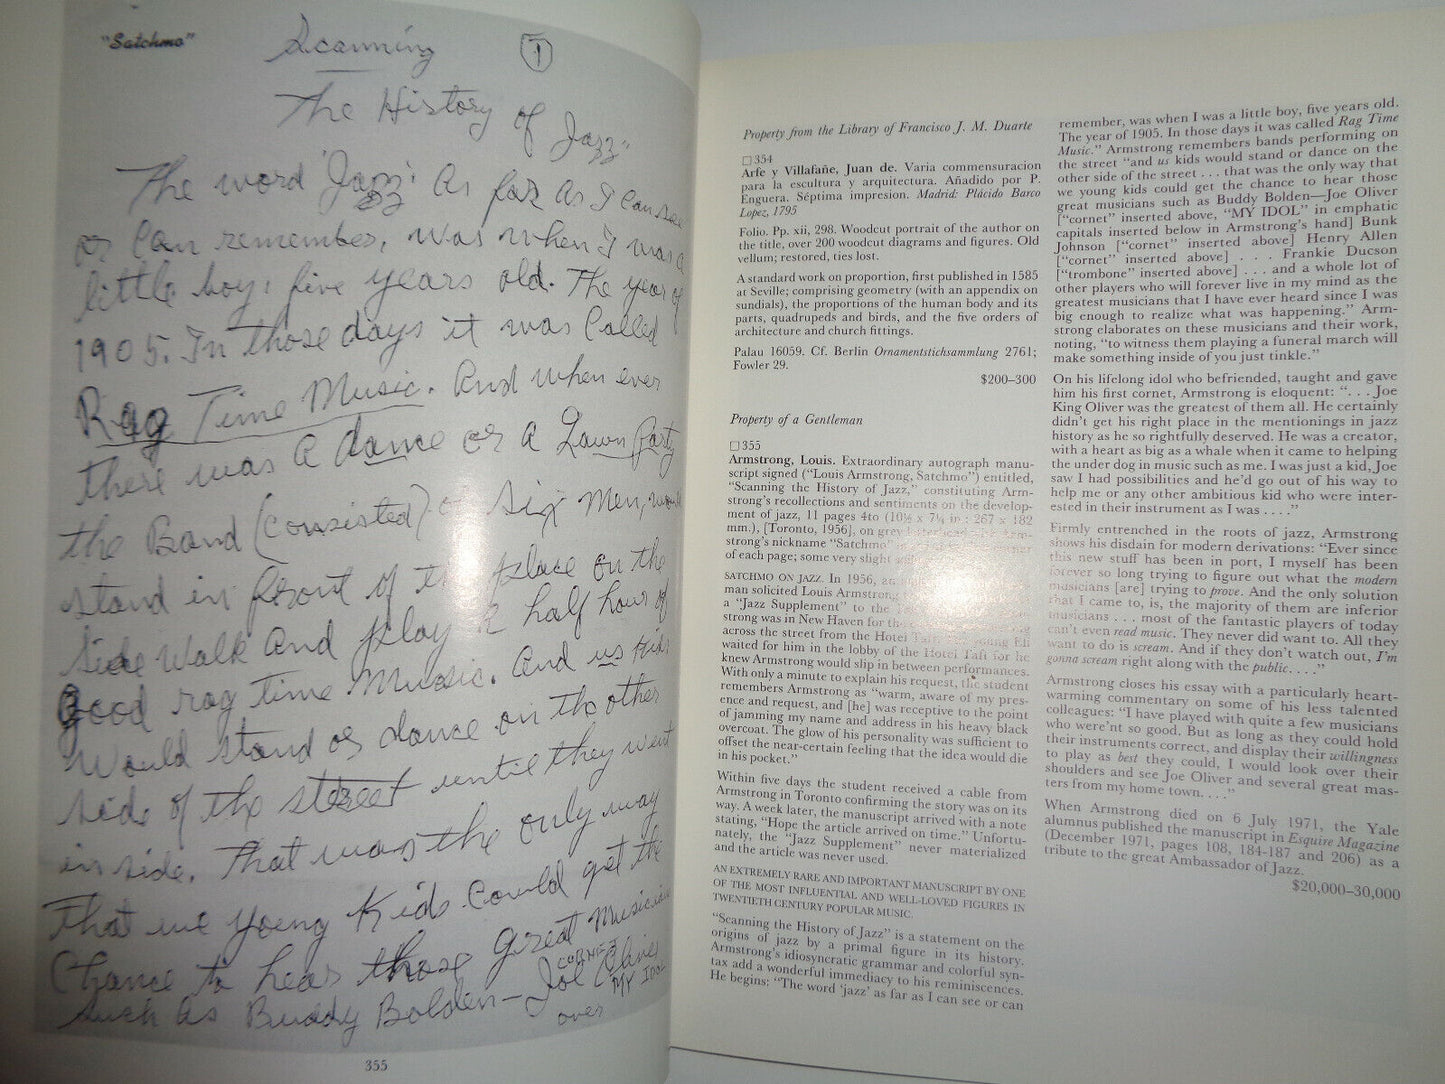 "Satchmo"
Scanning
1
The History of Jazz"
The word 'Jazz' as far as I can see
or can remember, was when I was a
little boy, five years old. The year of
1905. In those days it was called
Rag Time Music. And when ever
there was a dance or a Lawn Party
the Band (consisted) of Six Men, would
stand in front of the place on the
side walk and play a half hour of
good rag time Music. And us Kids
would stand or dance on the other
side of the street until they went
inside. That was the only way
that we young Kids could get the
Chance to hear those great Musicians
CORNET
such as Buddy Bolden–Joe Oliver
MY IDOL
over
355
Property from the Library of Francisco J. M. Duarte
354
Arfe y Villafañe, Juan de. Varia commensuracion
para la escultura y arquitectura. Añadido por P.
Enguera. Séptima impresion. Madrid: Plácido Barco
Lopez, 1795
Folio. Pp. xii, 298. Woodcut portrait of the author on
the title, over 200 woodcut diagrams and figures. Old
vellum; restored, ties lost.
A standard work on proportion, first published in 1585
at Seville; comprising geometry (with an appendix on
sundials), the proportions of the human body and its
parts, quadrupeds and birds, and the five orders of
architecture and church fittings.
Palau 16059. Cf. Berlin Ornamentstichsammlung 2761;
Fowler 29.
$200–300
Property of a Gentleman
355
Armstrong, Louis. Extraordinary autograph manu-
script signed ("Louis Armstrong, Satchmo") entitled,
"Scanning the History of Jazz," constituting Arm-
strong's recollections and sentiments on the develop-
ment of jazz, 11 pages 4to (10½ x 7¼ in.: 267 x 182
mm.), [Toronto, 1956], on grey letterhead with Arm-
strong's nickname "Satchmo" corner
of each page; some very slight
SATCHMO ON JAZZ. In 1956, an
man solicited Louis Armstrong
a "Jazz Supplement" to the
strong was in New Haven for the
across the street from the Hotel Taft. The young Eli
waited for him in the lobby of the Hotel Taft for he
knew Armstrong would slip in between performances.
With only a minute to explain his request, the student
remembers Armstrong as "warm, aware of my pres-
ence and request, and [he] was receptive to the point
of jamming my name and address in his heavy black
overcoat. The glow of his personality was sufficient to
offset the near-certain feeling that the idea would die
in his pocket."
Within five days the student received a cable from
Armstrong in Toronto confirming the story was on its
way. A week later, the manuscript arrived with a note
stating, "Hope the article arrived on time." Unfortu-
nately, the "Jazz Supplement" never materialized
and the article was never used.
AN EXTREMELY RARE AND IMPORTANT MANUSCRIPT BY ONE
OF THE MOST INFLUENTIAL AND WELL-LOVED FIGURES IN
TWENTIETH CENTURY POPULAR MUSIC.
"Scanning the History of Jazz" is a statement on the
origins of jazz by a primal figure in its history.
Armstrong's idiosyncratic grammar and colorful syn-
tax add a wonderful immediacy to his reminiscences.
He begins: "The word 'jazz' as far as I can see or can
remember, was when I was a little boy, five years old.
The year of 1905. In those days it was called Rag Time
Music." Armstrong remembers bands performing on
the street "and us kids would stand or dance on the
other side of the street . . . that was the only way that
we young kids could get the chance to hear those
great musicians such as Buddy Bolden—Joe Oliver
["cornet" inserted above, "MY IDOL" in emphatic
capitals inserted below in Armstrong's hand] Bunk
Johnson ["cornet" inserted above] Henry Allen
["cornet" inserted above] . . . Frankie Ducson
["trombone" inserted above] . . . and a whole lot of
other players who will forever live in my mind as the
greatest musicians that I have ever heard since I was
big enough to realize what was happening." Arm-
strong elaborates on these musicians and their work,
noting, "to witness them playing a funeral march will
make something inside of you just tinkle."
On his lifelong idol who befriended, taught and gave
him his first cornet, Armstrong is eloquent: ". . . Joe
King Oliver was the greatest of them all. He certainly
didn't get his right place in the mentionings in jazz
history as he so rightfully deserved. He was a creator,
with a heart as big as a whale when it came to helping
the under dog in music such as me. I was just a kid, Joe
saw I had possibilities and he'd go out of his way to
help me or any other ambitious kid who were inter-
ested in their instrument as I was . . . ."
Firmly entrenched in the roots of jazz, Armstrong
shows his disdain for modern derivations: "Ever since
this new stuff has been in port, I myself has been
forever so long trying to figure out what the modern
musicians [are] trying to prove. And the only solution
that I came to, is, the majority of them are inferior
musicians . . . most of the fantastic players of today
can't even read music. They never did want to. All they
want to do is scream. And if they don't watch out, I'm
gonna scream right along with the public. . . ."
Armstrong closes his essay with a particularly heart-
warming commentary on some of his less talented
colleagues: "I have played with quite a few musicians
who were'nt so good. But as long as they could hold
their instruments correct, and display their willingness
to play as best they could, I would look over their
shoulders and see Joe Oliver and several great mas-
ters from my home town. . . ."
When Armstrong died on 6 July 1971, the Yale
alumnus published the manuscript in Esquire Magazine
(December 1971, pages 108, 184-187 and 206) as a
tribute to the great Ambassador of Jazz.
$20,000–30,000